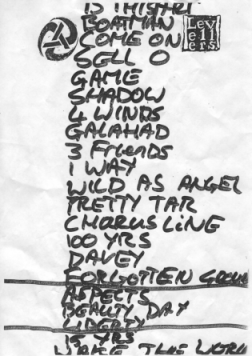 BOATMAN
COME ON
Lev
ell
ers.
SELL O
GAME
SHADOW
4 WINDS
GALAHAD
3 FrIeNDS
1 WAY
WILD AS ANGEL
PRETTY TAR
CHORUS LiNE
100 YRS
DAVEY
FORGOTTEN GROUND
ASPECTS
BEAUTY DAY
LIBERTY
15 YRS